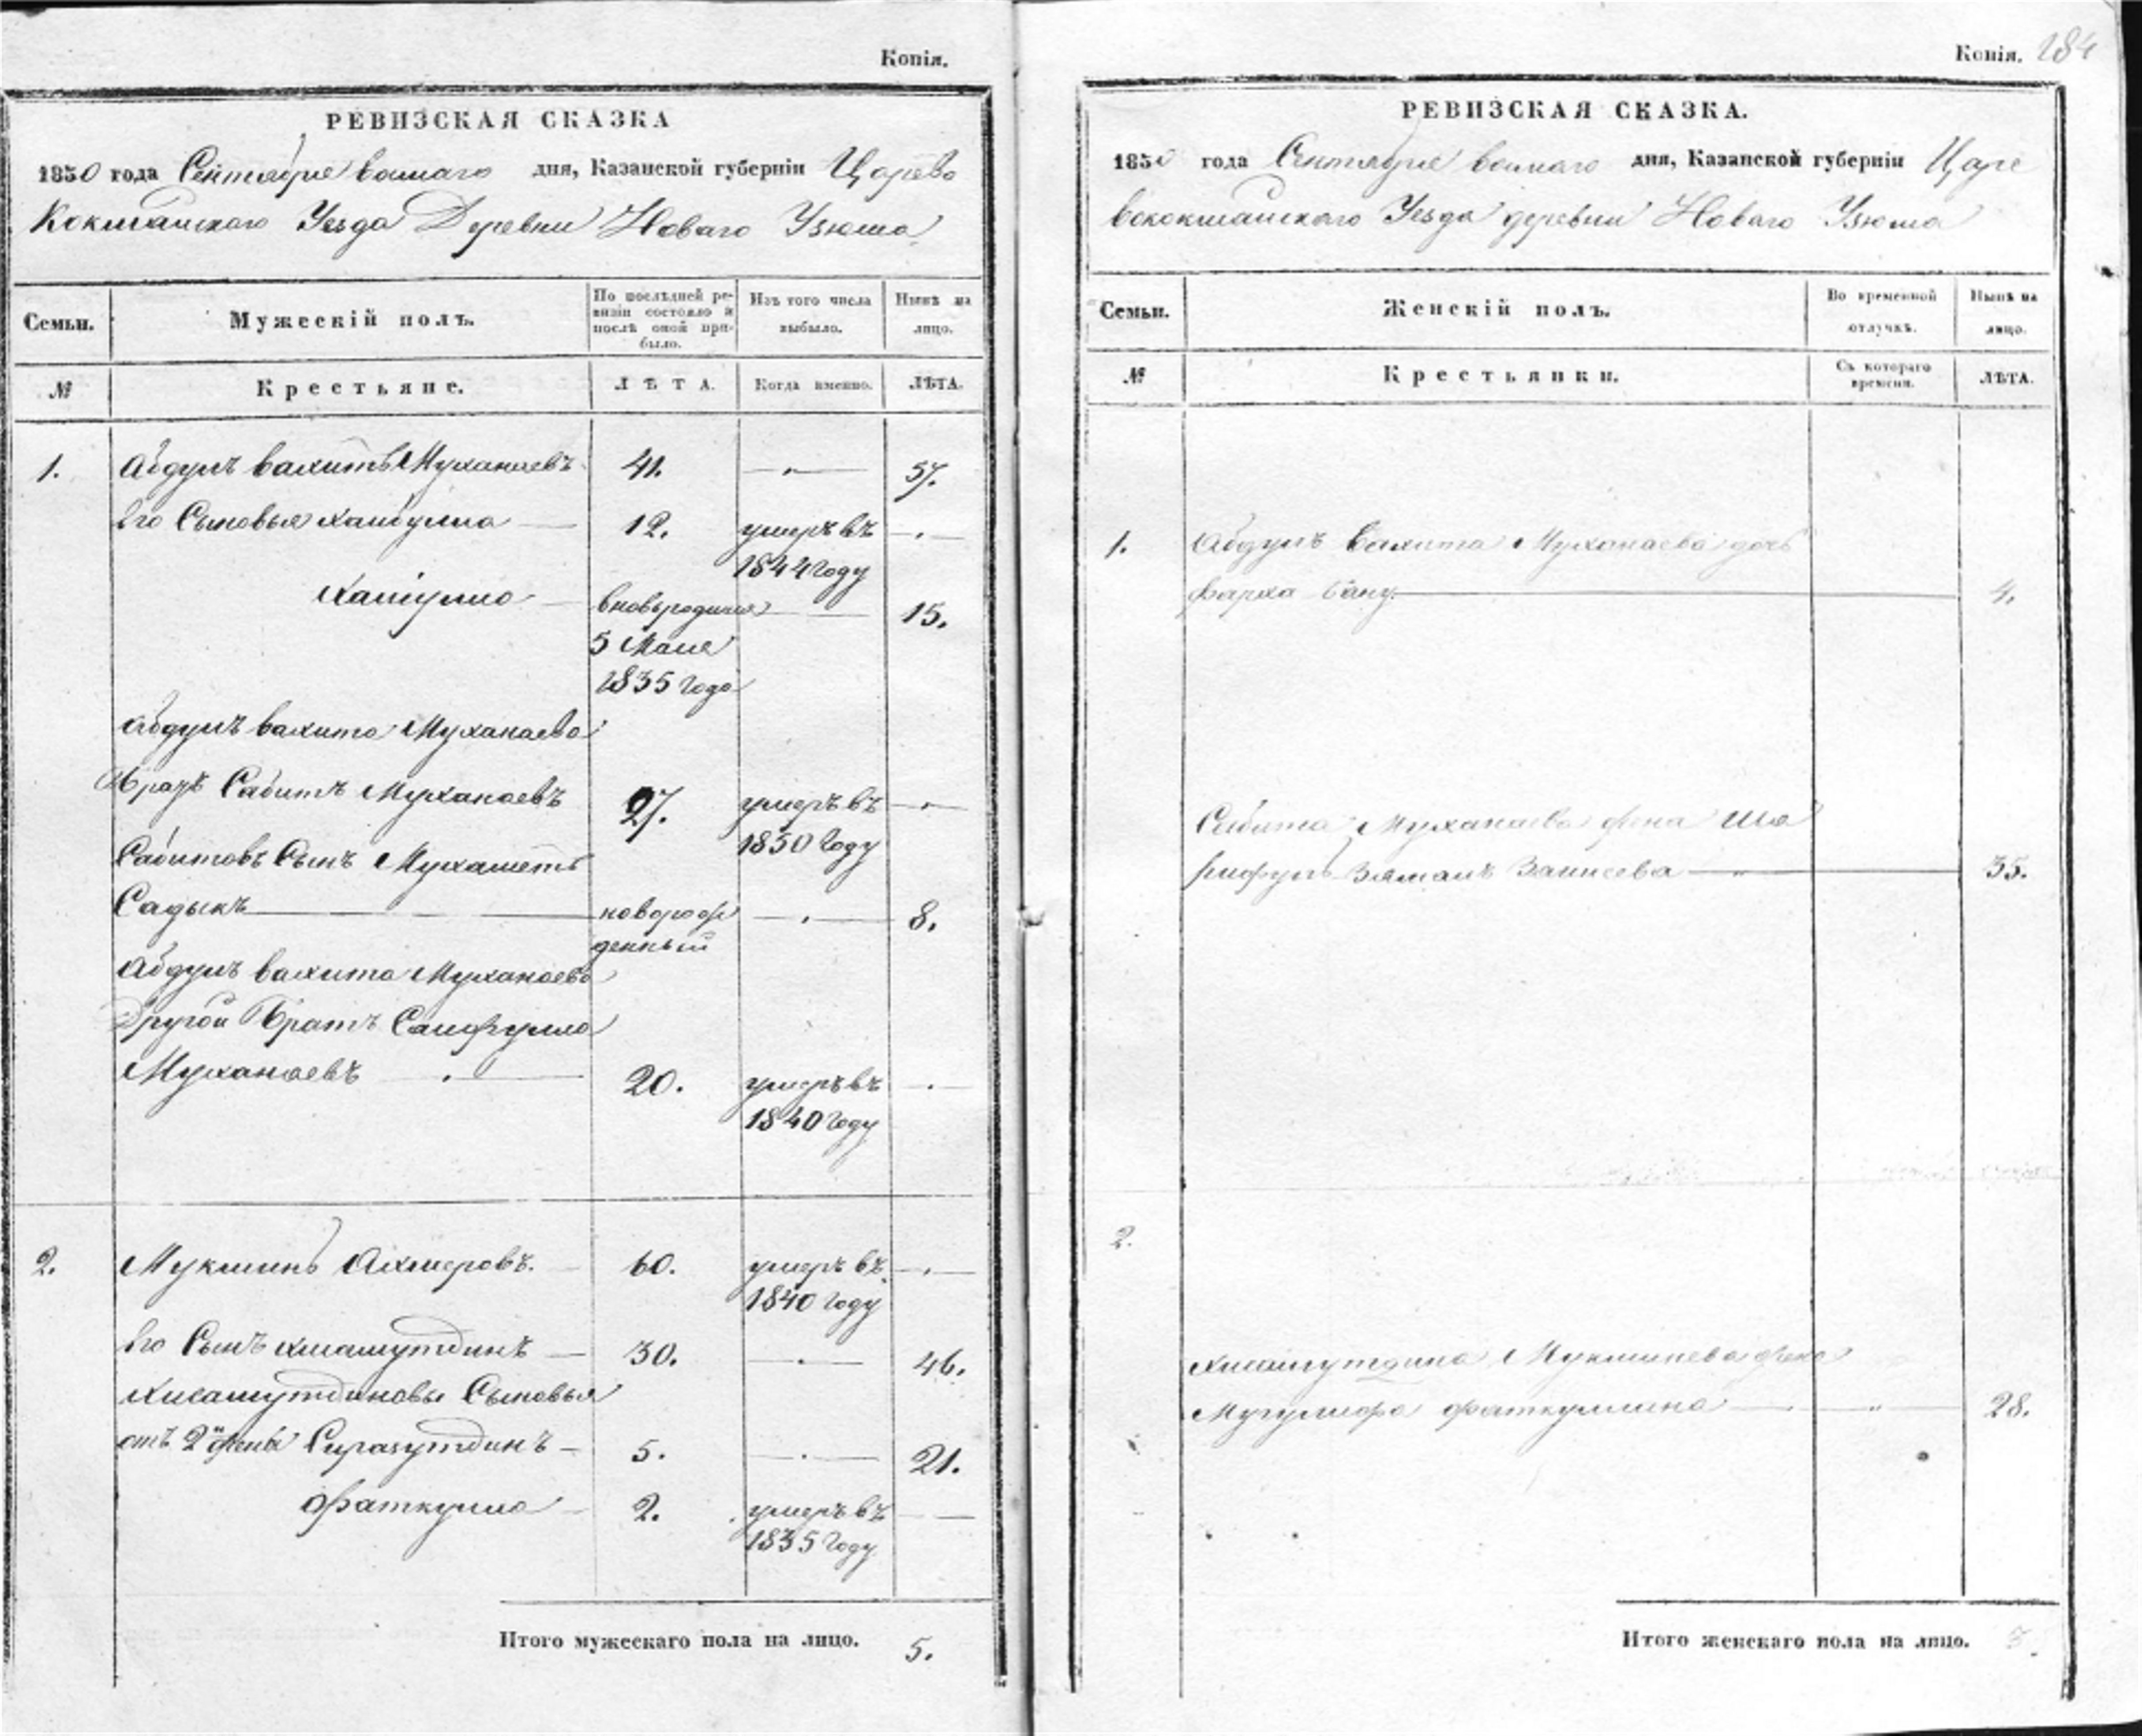 Копія.
РЕВИЗСКАЯ СКАЗКА
1850 года Сентября восмаго дня, Казанской губерніи Царево
Кокшайскаго Уезда Деревни Новаго Узюма
Семьи.
Мужескій полъ.
По послѣдней ре-
визіи состояло и
послѣ оной при-
было.
Изъ того числа
выбыло.
Нынѣ на
лицо.
№
Крестьяне.
ЛѢТА.
Когда именно.
ЛѢТА.
1. Абдулъ вахитъ Муханаевъ 41. 57.
Его Сыновья хайбулла 12. умеръ въ
1844 году
вновьродился 15.
5 Маия
1835 года
Абдулъ вахита Муханаева
Братъ Сабитъ Муханаевъ 27. умеръ въ
1850 году
Сабитовъ Сынъ Мухаметъ
Садыкъ новорож 8.
денный
Абдулъ вахита Муханаева
Другой Братъ Сайфулла
Муханаевъ 20. умеръ въ
1840 году
2. Мукминъ Ахмеровъ. 60. умеръ въ
1840 году
Его Сынъ хисамутдинъ 30. 46.
Хисамутдиновы Сыновья
отъ 2й жены Сиразутдинъ 5. 21.
Фаткулла 2. умеръ въ
1835 году
Итого мужескаго пола на лицо. 5.
Копія. 184
РЕВИЗСКАЯ СКАЗКА.
1850 года Сентября восмаго дня, Казанской губерніи Царе
вококшайскаго Уезда деревни Новаго Узюма
Семьи.
Женскій полъ.
Во временной
отлучкѣ.
Нынѣ на
лицо.
№
Крестьянки.
Съ котораго
времени.
ЛѢТА.
1. Абдулъ Вахита Муханаева дочь
Фарха бану 4.
Сабита Муханаева жена Ша
рифулъ Зямалъ 35.
2.
Хисамутдина Мукминева жена
Фаткуллина 28.
Итого женскаго пола на лицо. 3.